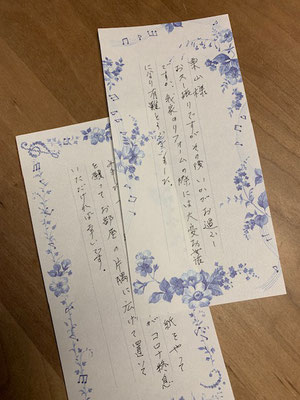 栗山様
お久し振りですが その後 いかがお過し
ですか。我家のリフォームの際には大変お世話
になり有難とうございました。
紙をやって
がコロナ終息
を願ってお部屋の片隅に広げて置いて
いただければ幸いです。